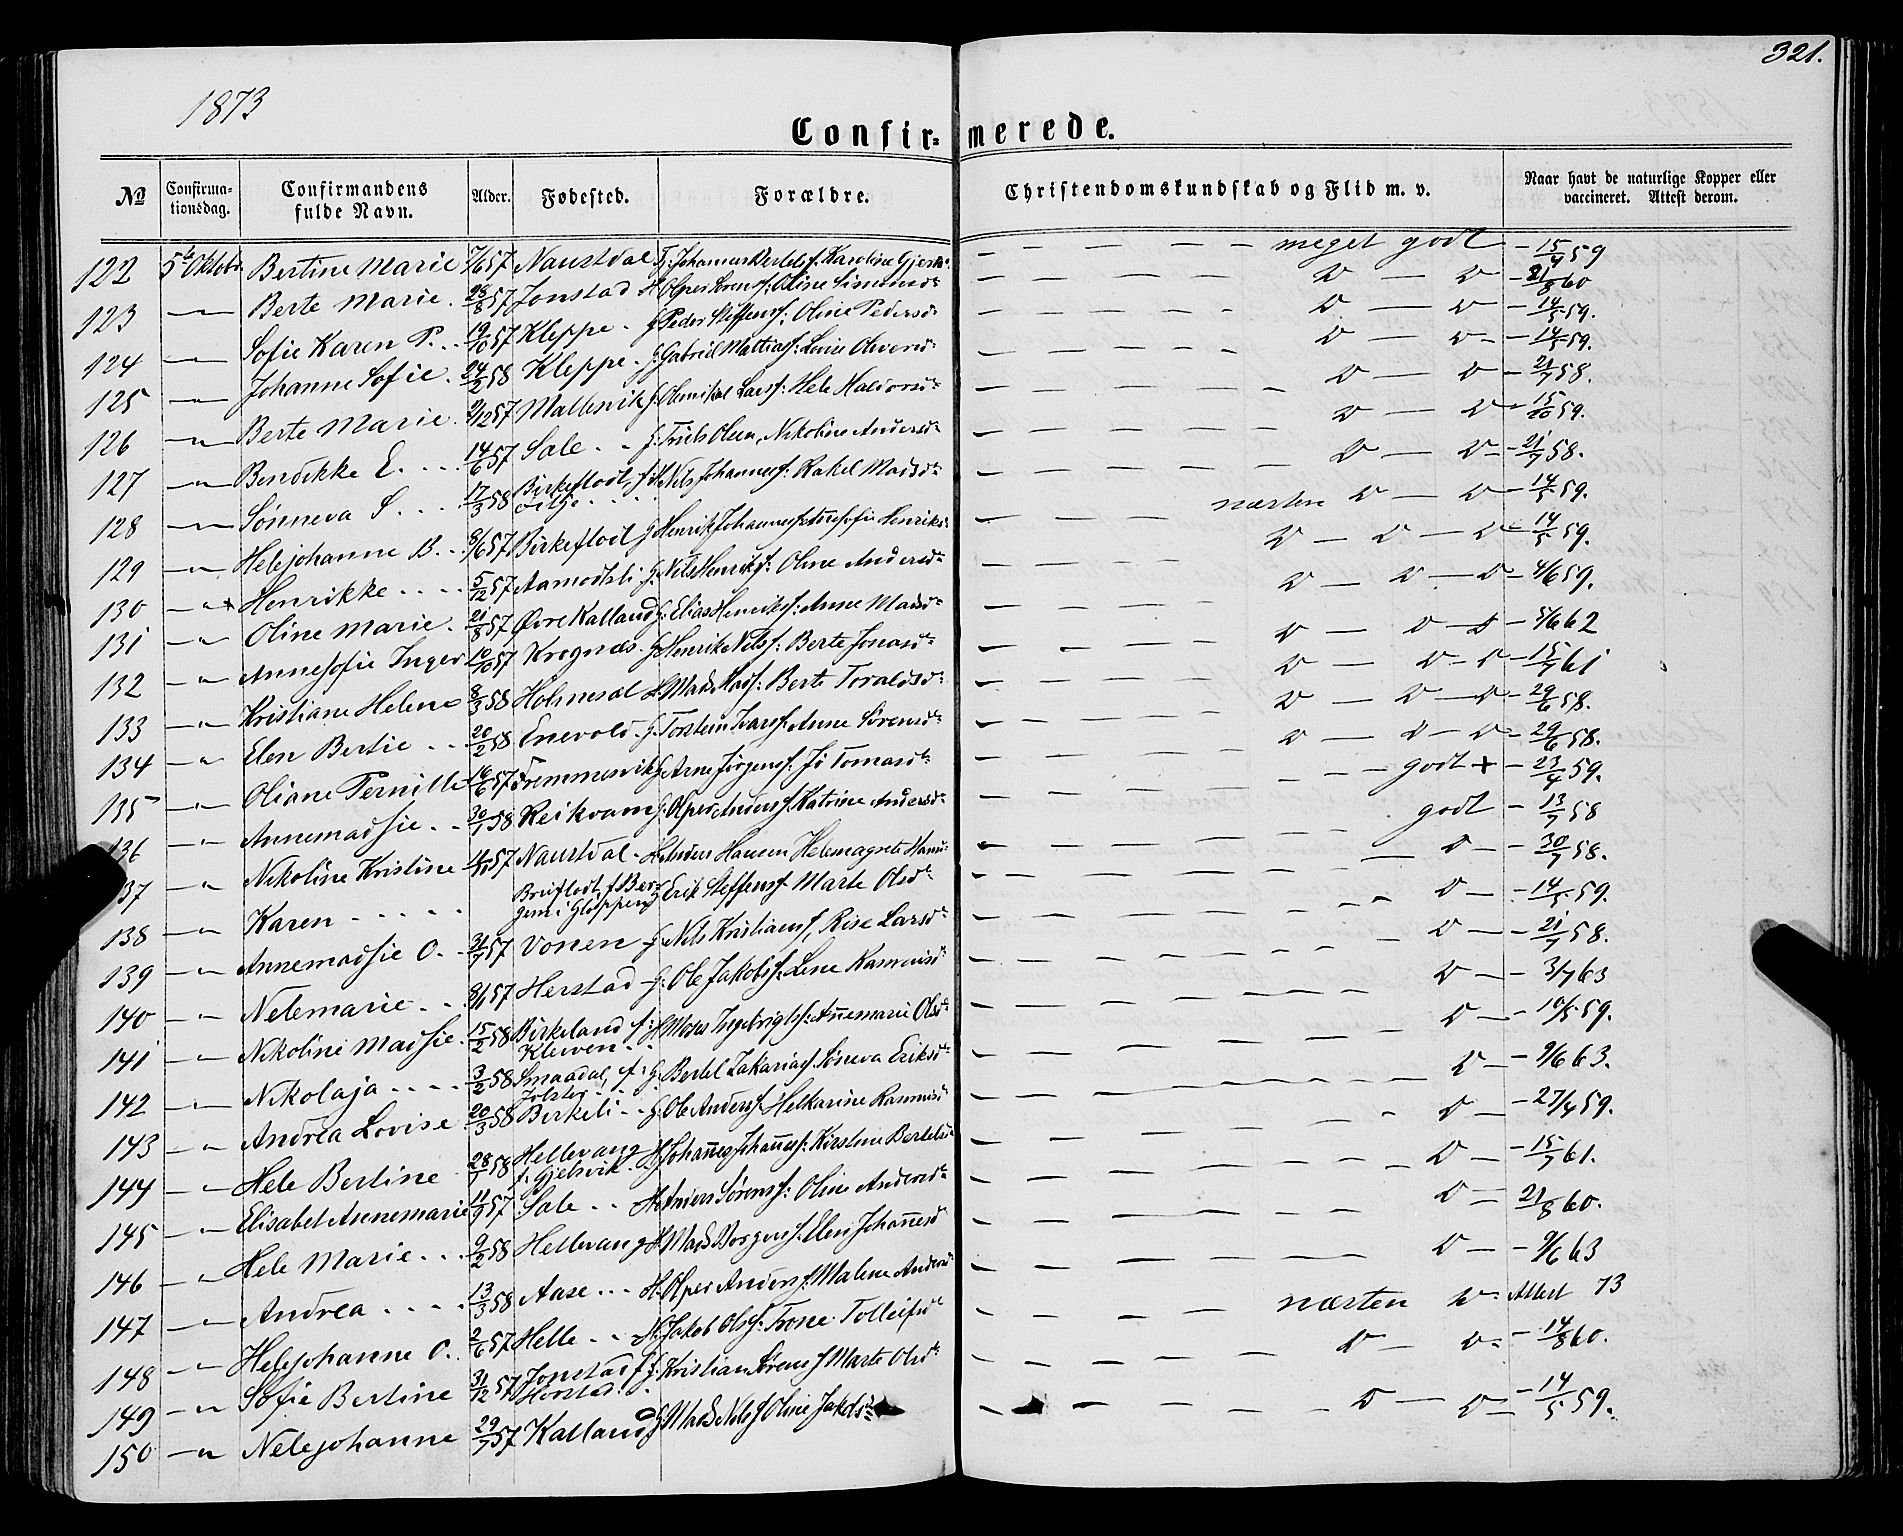 321.
1873
Confirmerede.
No Confirmationsdag. Confirmandens fulde Navn. Alder. Fødested. Forældre. Christendomskundskab og Flid m. v. Naar havt de naturlige Kopper eller vaccineret. Attest derom.
122 5te Oktobr Bertine Marie 7/6 57 Naustdal Johannes Bertelsf: Karoline — — — — meget godt — 15/4 59
123 —"— Berte Marie 28/8 57 Jonstad Sørensf: Oline Simonsd. — — — — D — D — 21/8 60
124 —"— Sofie Karen P. 19/10 57 Kleppe G Peder Steffensf: Oline Pedersd. — — — — D — D — 14/5 59.
125 —"— Johanne Sofie 24/2 58 Kleppe G: Gabriel Mattiasf: Lovise Oliversd. — — — — D — D — 14/5 59.
126 —"— Berte Marie 9/12 57 Larsf: Hele Halvorsd. — — — — D — D — 21/7 58.
127 —"— Bendikke E. 14/6 57 Sale Olsen, Nikoline Andersd. — — — — D — D — 15/10 59.
128 —"— Sønneva S. 17/3 58 Birkeflodt, f. Nils Johannesf: Rakel Madsd. — — — — D — D — 21/7 58.
129 —"— Helejohanne B. 8/6 57 Birkeflod G Henrik Johannesf — — — — næsten D — D — 14/5 59.
130 —"— Henrikke 5/12 57 Aamodtli G: Nils Henriksf: Oline Andersd. — — — — D — D — D — 14/5 59.
131 —"— Oline Marie 21/8 57 Øvre Kalland G: Elias Henriksf: Anne Madsd. — — — — D — D — D — 4/6 59.
132 —"— Annesofie Inger 10/10 57 Krognæs G Henrik Nilsf: Berte Jonasd. — — — — D — D — D — 5/6 62
133 —"— Kristiane Helene 8/3 58 Holmesæl Mads Madsf: Berte Toraldsd. — — — — D — D — D — 15/7 61
134 —"— Elen Bertie 20/2 58 Enevold G. Torstein Ivarsf: Anne Sørensd. — — — — D — D — D — 29/6 58.
135 —"— Oliane Pernille 16/6 57 Fremmesvik G Arne Jørgensf: Tomasd. — — — — D — D — D — 29/6 58.
136 —"— Annemadsie 30/1 58 Reikvam G. Andersf. Katrine Andersd. — — — — godt + — 23/4 59.
137 —"— Nikoline Kristine 4/11 57 Naustdal H Anders Hansen Helemagrete — — — — godt — 13/7 58
138 —"— Karen Breiflodt, f. Bergem i Gloppen G Erik Steffensf Marte Olsd. — — — — D — 30/7 58.
139 —"— Annemadsie O. 31/7 57 Vonen G. Nils Kristiansf, Larsd. — — — — D — 14/5 59.
140 —"— Nelemarie 8/11 57 Herstad G: Ole Jakobsf. Lene Rasmusd. — — — — D — 21/7 58.
141 —"— Nikoline Madsie 15/2 58 Birkeland f: Kleiven H Moses Ingebrigtsf: Annemarie Olsd. — — — — D — 3/7 63
142 —"— Nikolaja 3/2 58 Smaadal, f: Jølster G. Bertel Zakariasf Søneva Eriksd. — — — — D — 10/5 59.
143 —"— Andrea Lovise 20/3 58 Birkeli G. Ole Andersf Helkarine Rasmusd — — — — D — 9/6 63.
144 —"— Hele Bertine 28/7 58 Hellevang f. Gjelsvik H Johannes Johannesf: Kirstine Bertelsd. — — — — D — 27/4 59.
145 —"— Elisabet Annemarie 11/9 57 Sale H. Anders Sørensf: Oline Andersd. — — — — D — 15/7 61.
146 —"— Hele Marie 9/2 58 Hellevang H Mads Elen Johannesd — — — — D — 21/8 60.
147 —"— Andrea 13/3 58 Aase H. Andersf: Malene Andersd. — — — — D — 9/6 63
148 —"— Helejohanne O. 2/6 57 Helle H. Jakob Olsf: Trone Tolleifsd. — — — — næsten D — Attest 73
149 —"— Sofie Bertine 31/12 57 Jonstad f Horstad G. Kristian Sørensf Marte Olsd. — — — — D — D — 14/8 60.
150 —"— Nelejohanne 29/7 57 Kalland G Mads Nilsf Oline Jakobsd. — — — — D — D — 14/5 59.